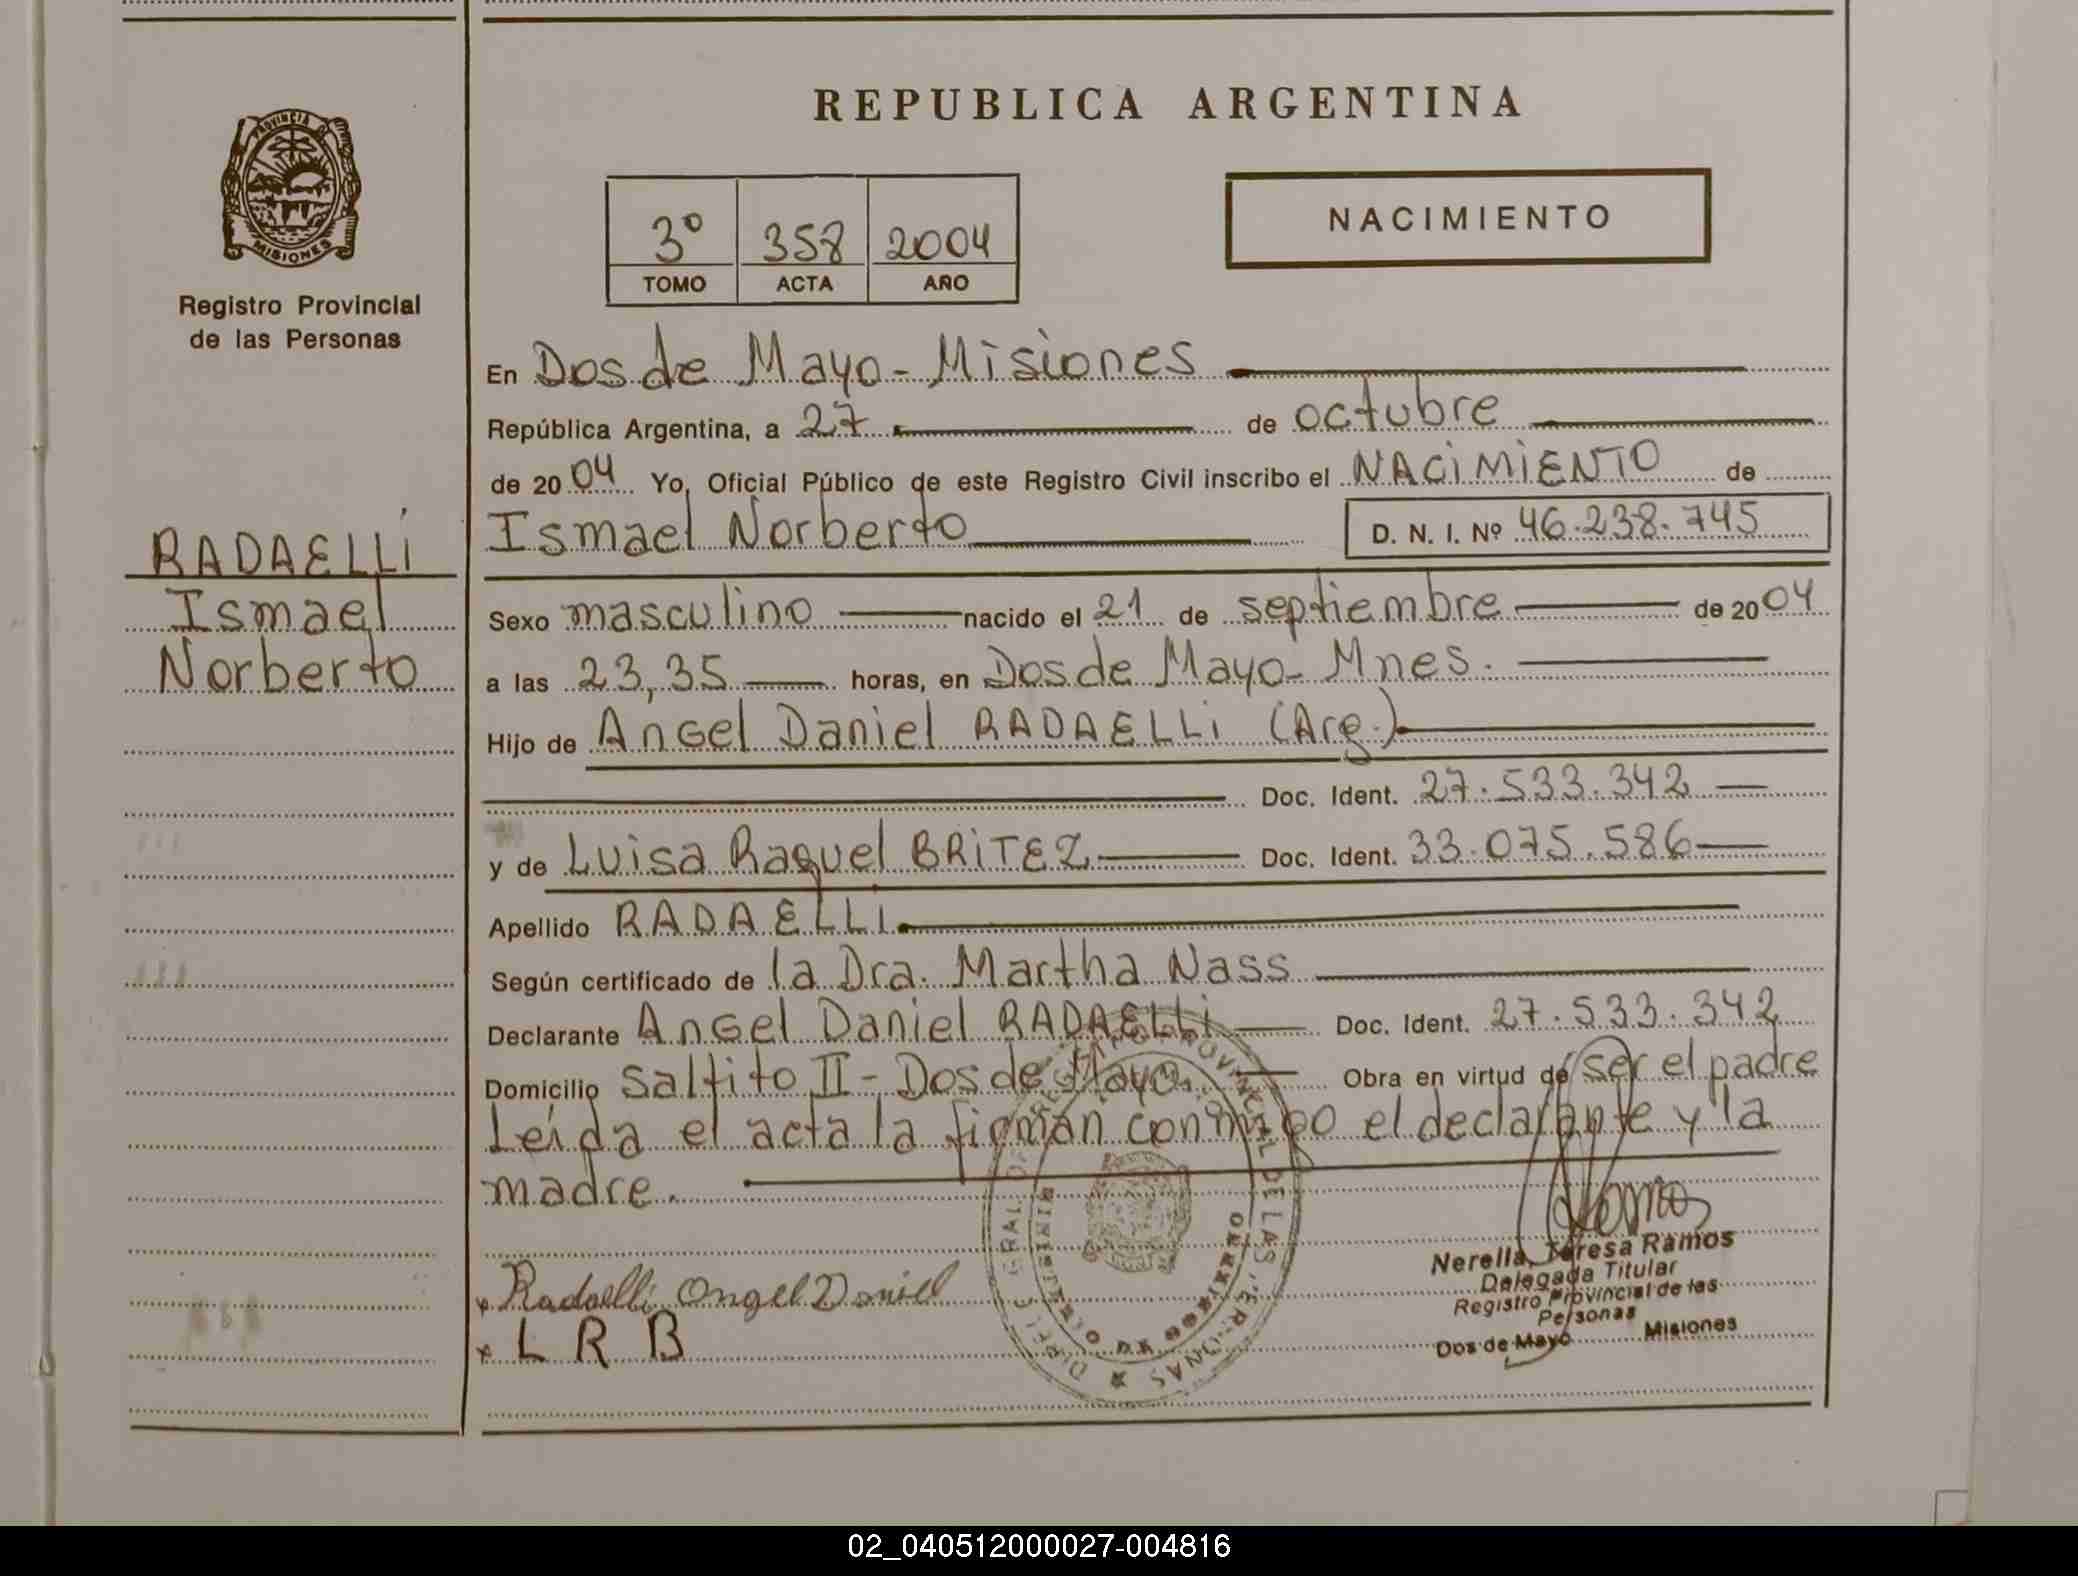 REPUBLICA ARGENTINA
PROVINCIA DE
MISIONES
Registro Provincial
de las Personas
3º 358 2004
TOMO ACTA AÑO
NACIMIENTO
En Dos de Mayo - Misiones
República Argentina, a 27 de octubre
de 2004 Yo, Oficial Público de este Registro Civil inscribo el NACIMIENTO de
Ismael Norberto D. N. I. Nº 46.238.745
RADAELLI
Ismael
Norberto
Sexo masculino nacido el 21 de septiembre de 2004
a las 23,35 horas, en Dos de Mayo - Mnes.
Hijo de Angel Daniel RADAELLI (Arg.)
Doc. Ident. 27.533.342
y de Luisa Raquel BRITEZ Doc. Ident. 33.075.586
Apellido RADAELLI
Según certificado de la Dra. Martha Nass
Declarante Angel Daniel RADAELLI Doc. Ident. 27.533.342
Domicilio Saltito II - Dos de Mayo Obra en virtud de ser el padre
Leída el acta la firman conmigo el declarante y la
madre.
x Radaelli Angel Daniel
x L R B
Nerella Teresa Ramos
Delegada Titular
Registro Provincial de las
Personas
Dos de Mayo Misiones
02_040512000027-004816